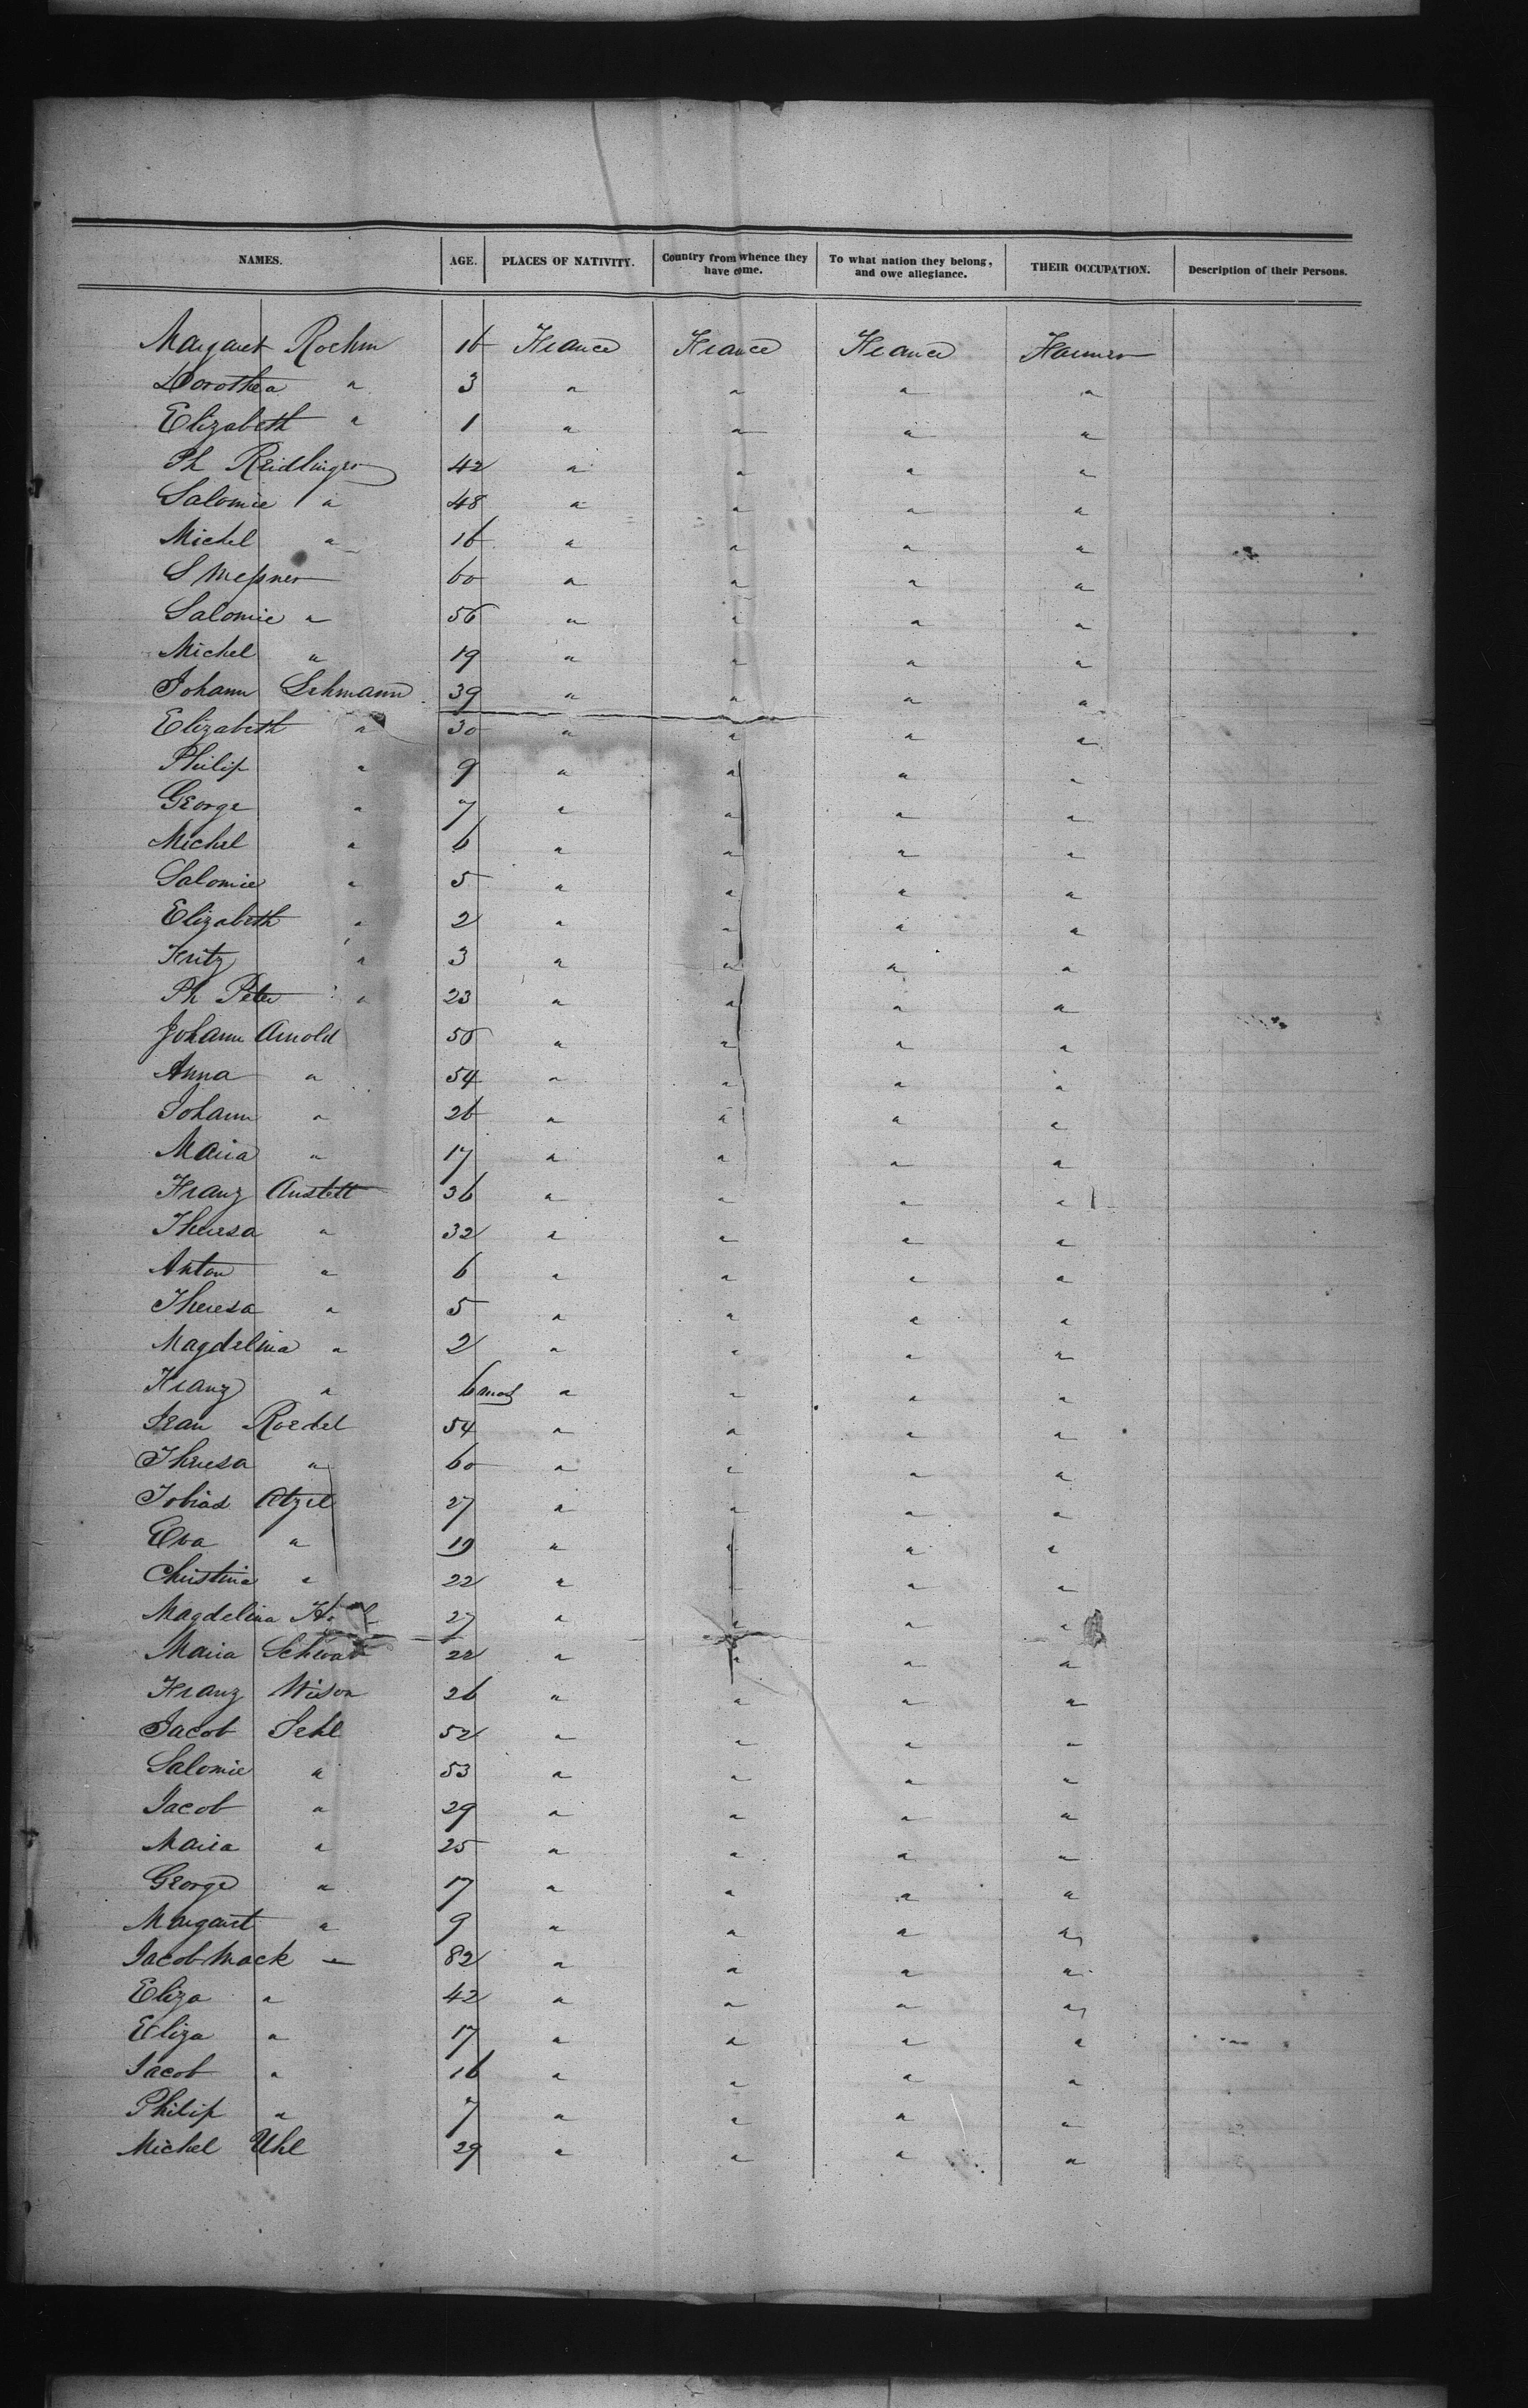 NAMES. AGE. PLACES OF NATIVITY. Country from whence they have come. To what nation they belong, and owe allegiance. THEIR OCCUPATION. Description of their Persons.
Margaret Roehm 16 France France France Farmer
Dorothea " 3 " " " "
Elizabeth " 1 " " " "
Ph Reidlinger 42 " " " "
Salomie " 48 " " " "
Michel " 16 " " " "
S Meßner 60 " " " "
Salomie " 56 " " " "
Michel " 19 " " " "
Johann Lehmann 39 " " " "
Elizabeth " 30 " " " "
Philip " 9 " " " "
George " 7 " " " "
Michel " 6 " " " "
Salomie " 5 " " " "
Elizabeth " 2 " " " "
Fritz " 3 " " " "
Ph Peter " 23 " " " "
Johann Arnold " " " "
Anna " 54 " " " "
Johann " 26 " " " "
Maria " 17 " " " "
Franz Anstett 36 " " " "
Theresa " 32 " " " "
Anton " 6 " " " "
Theresa " 5 " " " "
Magdelina " 2 " " " "
Franz " 6 mos " " " "
Jean Roedel 54 " " " "
Theresa " 60 " " " "
Tobias Atzel 27 " " " "
Eva " 19 " " " "
Christine " 22 " " " "
Magdelina 27 " " " "
Maria Schwab 22 " " " "
Franz 26 " " " "
Jacob Jehl 52 " " " "
Salomie " 53 " " " "
Jacob " 29 " " " "
Maria " 25 " " " "
George " 17 " " " "
Margaret " 9 " " " "
Jacob Mack 82 " " " "
Eliza " 42 " " " "
Eliza " 17 " " " "
Jacob " 16 " " " "
Philip " 7 " " " "
Michel Uhl 29 " " " "